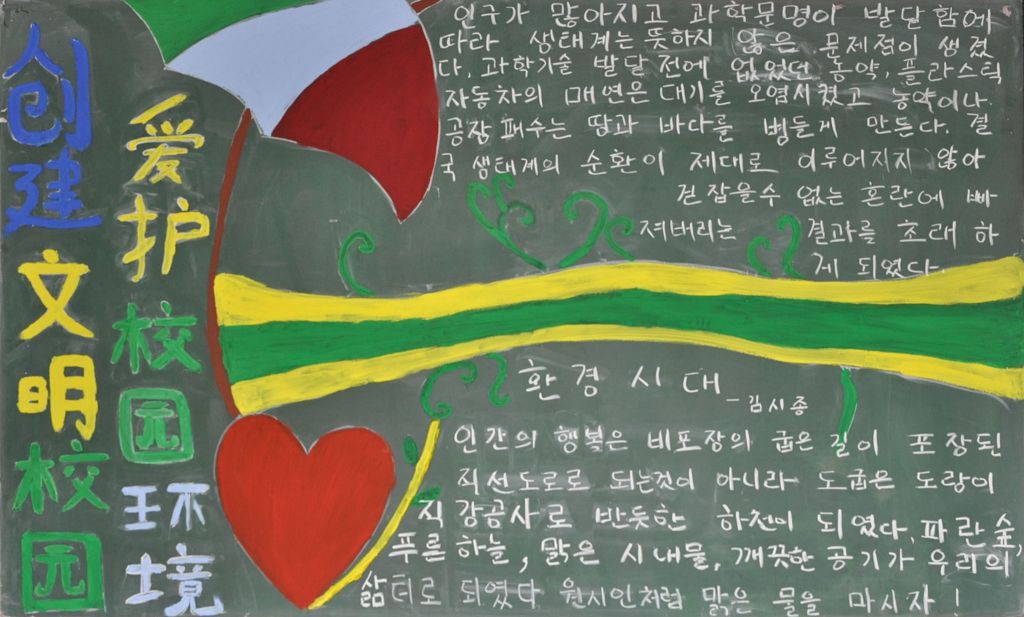 创建文明校园
爱护校园环境
인구가 많아지고 과학문명이 발달함에
따라 생태계는 뜻하지 않은 문제점이 생겼
다. 과학기술 발달 전에 없었던 농약, 플라스틱
자동차의 매연은 대기를 오염시켰고 농약이나
공장 폐수는 땅과 바다를 병들게 만든다. 결
국 생태계의 순환이 제대로 이루어지지 않아
걷잡을수 없는 혼란에 빠
져버리는 결과를 초래하
게 되였다.
환경시대
- 김시종
인간의 행복은 비포장의 굽은 길이 포장된
직선도로로 되는것이 아니라 도굽은 도랑이
직강공사로 반듯한 하천이 되였다. 파란숲,
푸른하늘, 맑은 시내물, 깨끗한 공기가 우리의
삶터로 되였다 원시인처럼 맑은 물을 마시자!